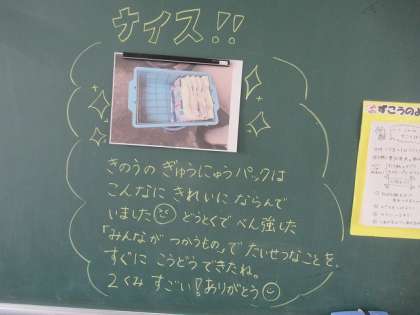 ナイス!!
きのうの ぎゅうにゅうパックは
こんなに きれいに ならんで
いました どうとくで べん強した
「みんなが つかうもの」で たいせつなことを、
すぐに こうどうできたね。
2くみ すごい!ありがとう